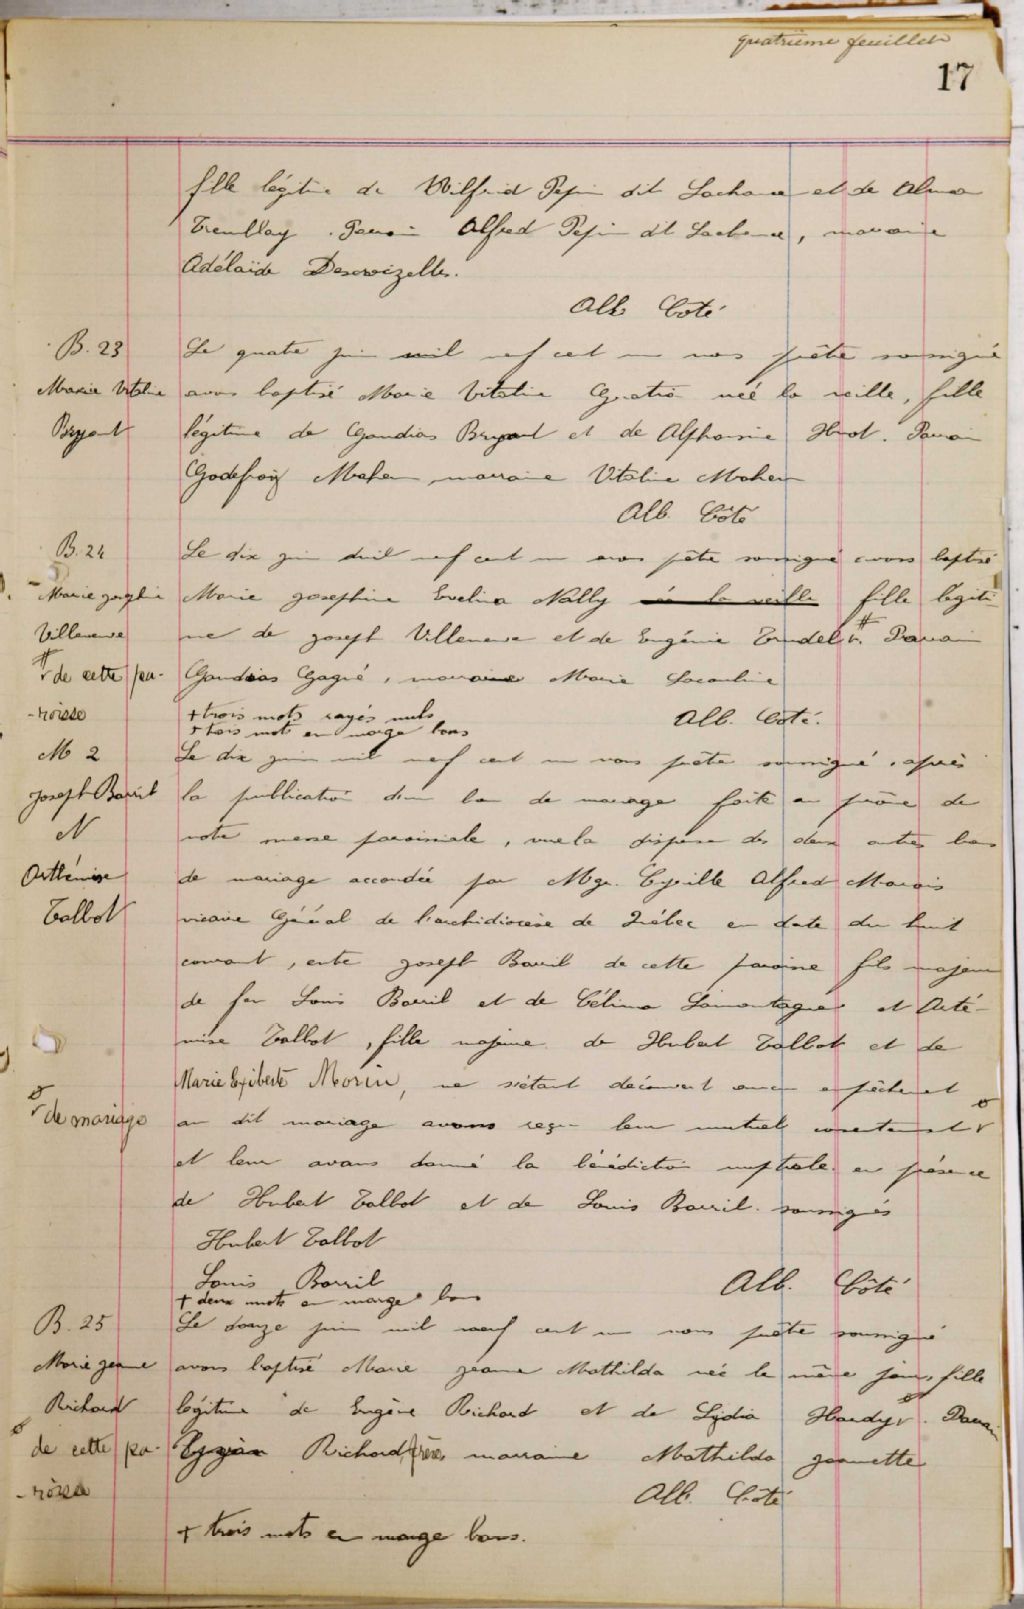 quatrième feuillet
17
fille légitime de Wilfrid Pepin dit Lachance et de Alma
Tremblay. Parrain Alfred Pepin dit Lachance, marraine
Adélaïde Descroizelles.
Alb Côté
B. 23
Marie Vitaline
Bryant
Le quatre juin mil neuf cent un nous prêtre soussigné
avons baptisé Marie Vitaline née la veille, fille
légitime de Gaudias Bryant et de Alphonsine Huot. Parrain
Godefroy Maheu marraine Vitaline Maheu
Alb. Côté
B. 24
Marie Josephine
Villeneuve
# de cette pa-
-roisse
Le dix juin mil neuf cent un nous prêtre soussigné avons baptisé
Marie Josephine Evelina Nally née la veille fille légiti
me de Joseph Villeneuve et de Eugénie Trudel #. Parrain
Gaudias Gagné, marraine Marie
+ trois mots rayés nuls
+ trois mots en marge bons
Alb. Côté.
M 2
Joseph Barril
&
Arthémise
Talbot
Le dix juin mil neuf cent un nous prêtre soussigné, après
la publication d'un ban de mariage faite au prône de
notre messe paroissiale, vu la dispense des deux autres bans
de mariage accordée par Mgr. Cyrille Alfred Marois
vicaire Général de l'archidiocèse de Québec en date du huit
courant, entre Joseph Barril de cette paroisse fils majeur
de feu Louis Barril et de Célina Lamontagne et Arté-
mise Talbot, fille majeure de Hubert Talbot et de
Marie Exiberte Morin, ne s'étant découvert aucun empêchement
au dit mariage avons reçu leur mutuel consentement
de mariage
et leur avons donné la bénédiction nuptiale en présence
de Hubert Talbot et de Louis Barril soussignés
Hubert Talbot
Louis Barril
+ deux mots en marge bons
Alb. Côté
B. 25
Marie Jeanne
Richard
de cette pa-
-roisse
Le douze juin mil neuf cent un nous prêtre soussigné
avons baptisé Marie Jeanne Mathilda née le même jour, fille
légitime de Eugène Richard et de Lydia Hardy. Parrain
Richard, frère, marraine Mathilda Jeannette
Alb. Côté
+ trois mots en marge bons.